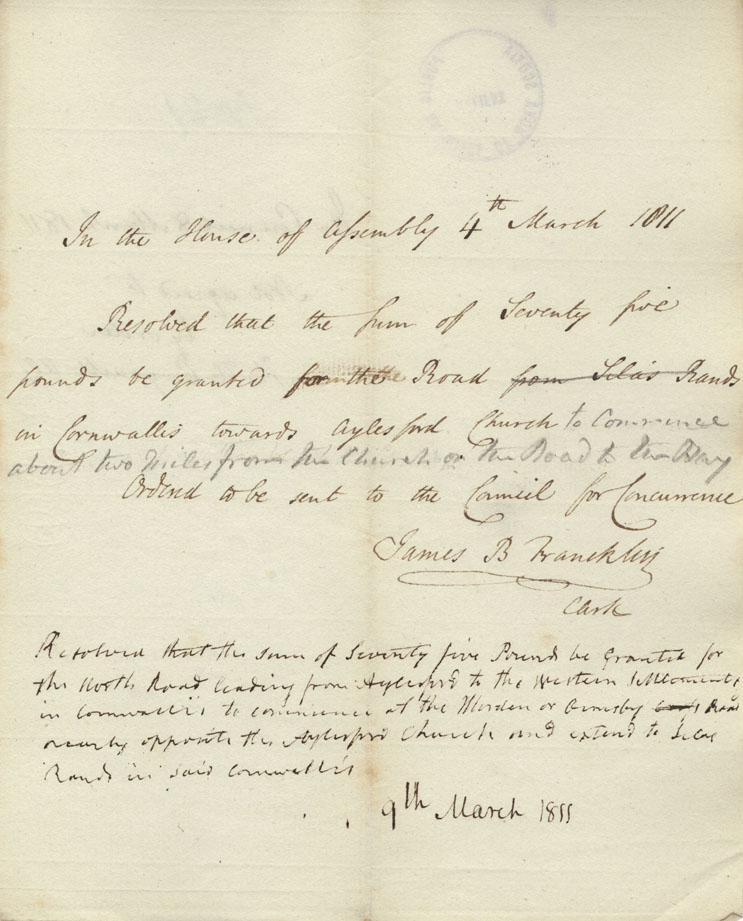 In the House of Assembly 4th March 1811
Resolved that the Sum of Seventy five
pounds be granted for the Road from Silas Rands
in Cornwallis towards Aylesford Church to Commence
about two Miles from the Church on the Road to the Bay
Ordered to be sent to the Council for Concurrence
James B Francklin
Clerk
Resolved that the sum of Seventy five Pound be Granted for
the North Road leading from Aylesford to the Western Settlements
in Cornwallis to commence at the Morden or Ormsby Road
nearly opposite the Aylesford Church and extend to Silas
Rands in said Cornwallis
9th March 1811